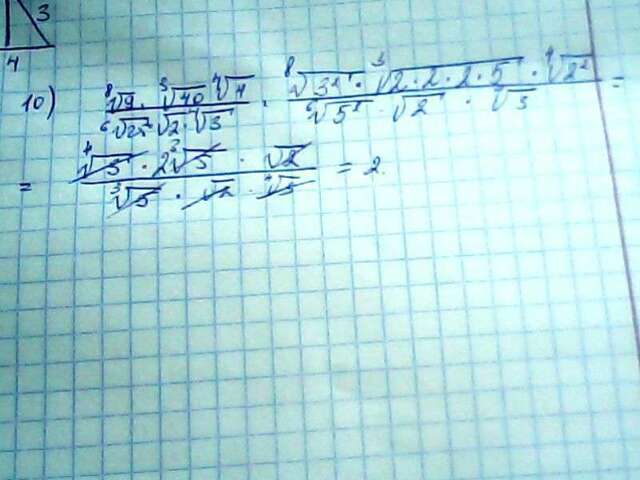 3
4
10) ⁸√9 · ³√40 · ⁴√4 / ⁶√25 · √2 · ⁴√3 · ⁸√3² · ³√2·2·2·5 · ⁴√2² / ⁶√5² · √2 · √3 =
= ⁴√5 · 2³√5 · √2 / ³√5 · √2 · ⁴√5 = 2.